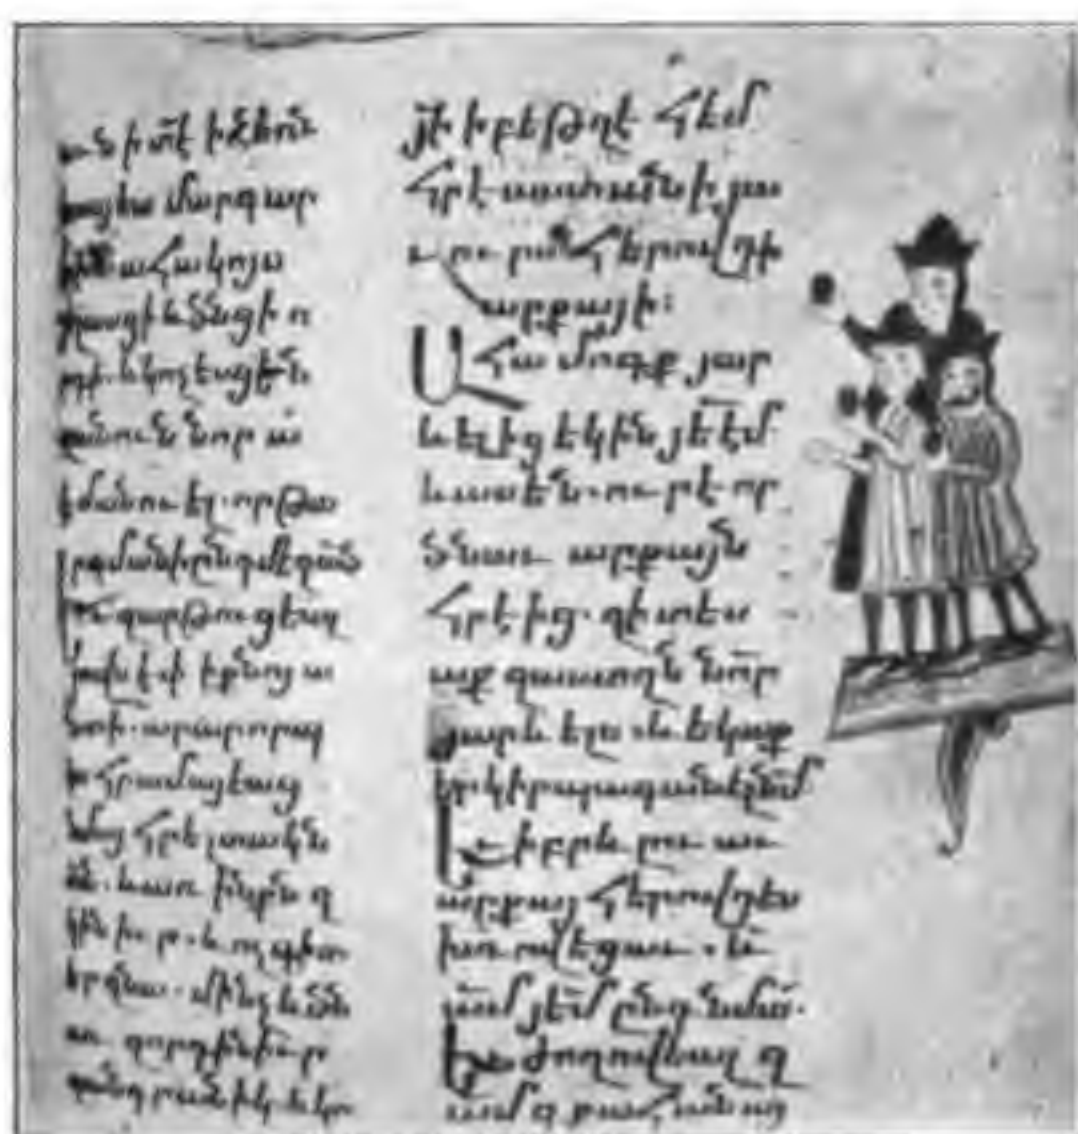 մարգար
ահա կոյս
յղասցի և ծնցի ո
րդի. և կոչեսցեն
զանուն նորա
էմանուէլ. որ թա
րգմանի ընդ մեզ ած
Եւ զարթուցեալ
յովսէփ ի քնոյ ա
նտի. արար որպ
էս հրամայեաց
հրեշտակն
և առ
կին իւր. և ոչ գիտ
էր զնա. մինչև ծն
աւ զորդին իւր
զանդրանիկ. և կո
յի ի բեթղէհէմ
հրէաստանի յա
ւուրս հերովդի
արքայի:
Ահա մոգք յար
ևելից եկին յէէմ
և ասեն. ուր է որ
ծնաւ արքայն
հրէից. զի տես
աք զաստղն նոր
յարևելս և եկաք
երկիր պագանել նմ
Եւ իբրև լուաւ
արքայ հերովդէս
խռովեցաւ. և
ամ յէմ ընդ նմա.
Եւ ժողովեալ զ
ամ զքահանայ